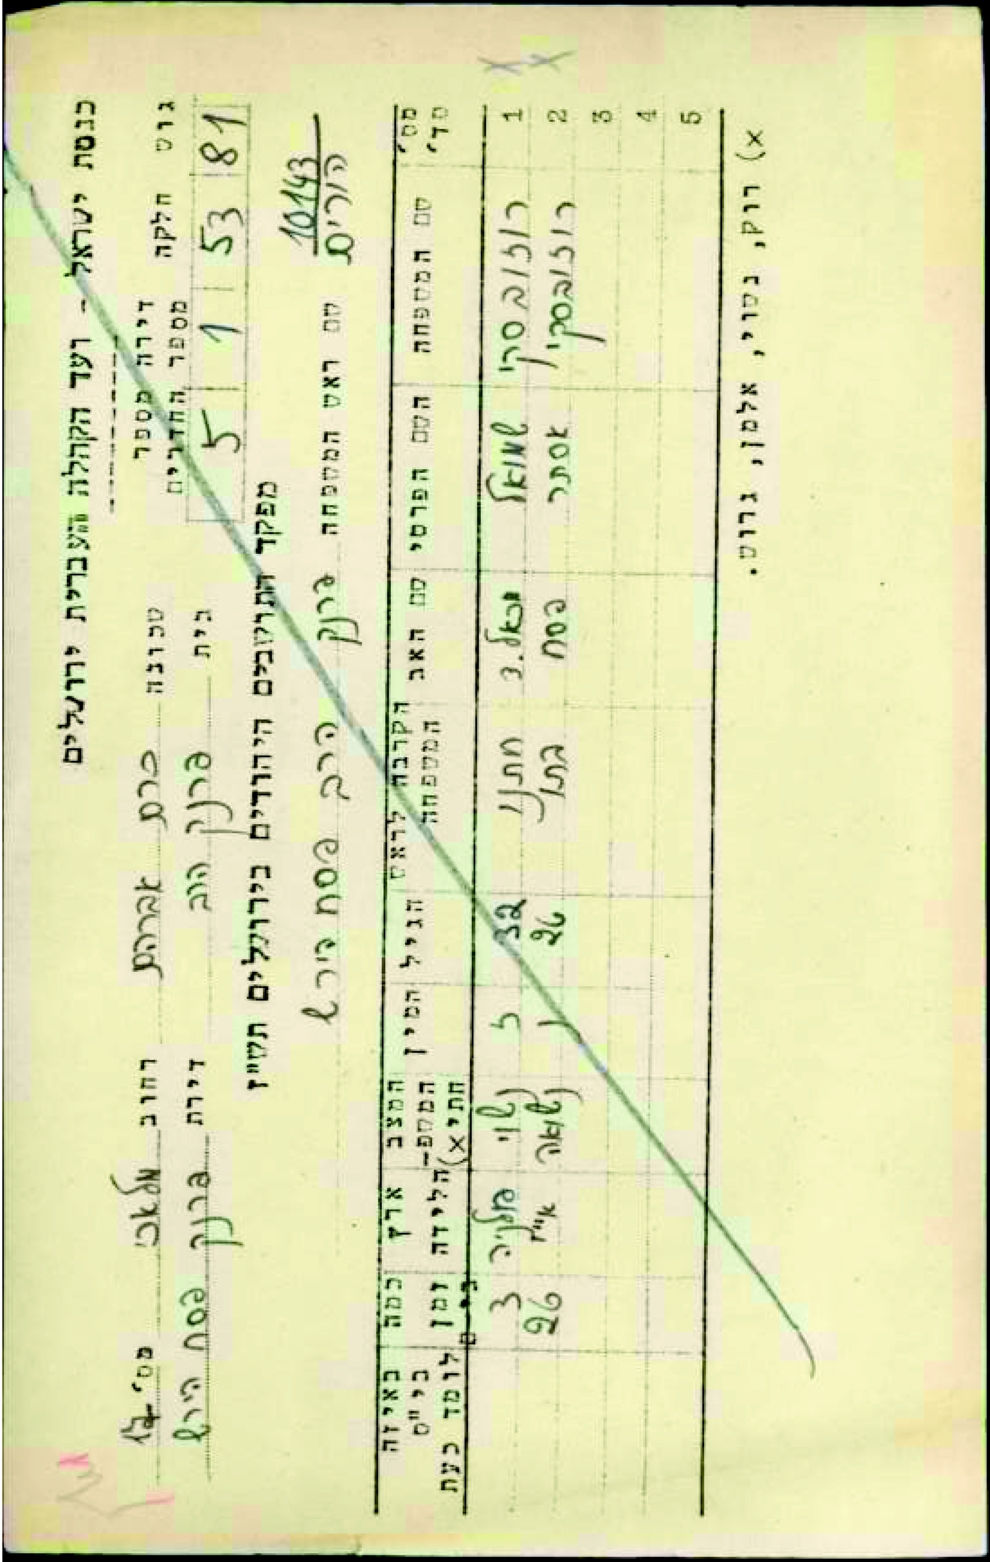 כנסת ישראל - ועד הקהלה העברית ירושלים
גוש חלקה דירה מספר מספר החדרים
81 53 1 5
שכונה כרם אברהם רחוב מלאכי מס׳
בית פרנק הרב דירת פרנק פסח הירש
מפקד התושבים היהודים בירושלים תש"ז
10143
הורים
שם ראש המשפחה פרנק הרב פסח הירש
מס׳ סד׳ שם המשפחה השם הפרטי שם האב הקרבה לראש המשפחה הגיל המין המצב המשפ-חתי x) ארץ הלידה כמה זמן בי-ם באיזה בי"ס לומד כעת
1 רוזובסקי שמואל מכאל.ד חתנו 32 ז נשוי פולניה 3
2 רוזובסקי אסתר פסח בתו 26 נ נשואה א"י 26
3
4
5
x) רוק, נשוי, אלמן, גרוש.